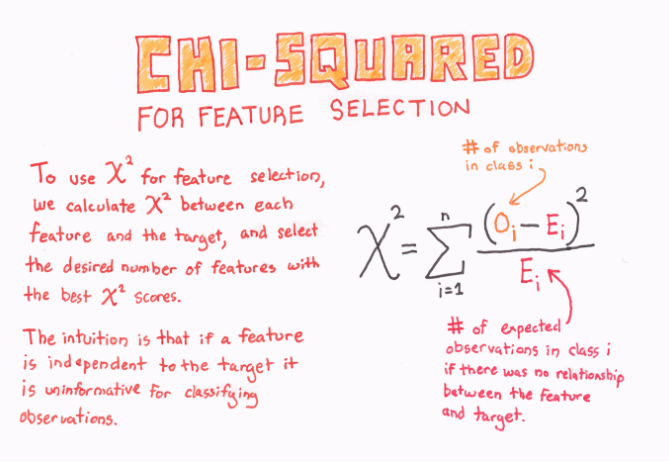 CHI-SQUARED
FOR FEATURE SELECTION
To use χ² for feature selection,
we calculate χ² between each
feature and the target, and select
the desired number of features with
the best χ² scores.
The intuition is that if a feature
is independent to the target it
is uninformative for classifying
observations.
# of observations
in class i
χ² = Σ_{i=1}^{n} (Oᵢ – Eᵢ)² / Eᵢ
# of expected
observations in class i
if there was no relationship
between the feature
and target.